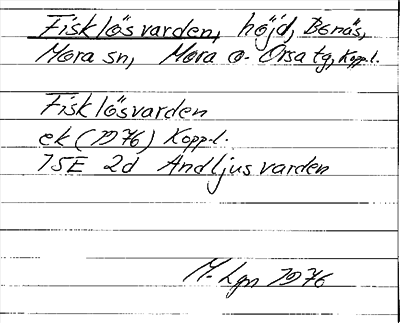 Fisklösvarden, höjd, Bonäs,
Mora sn, Mora o. Orsa tg, Kopp.l.
Fisklösvarden
ek (1976) Kopp.l.
15E 2d Andljusvarden
M. Lgn 1976